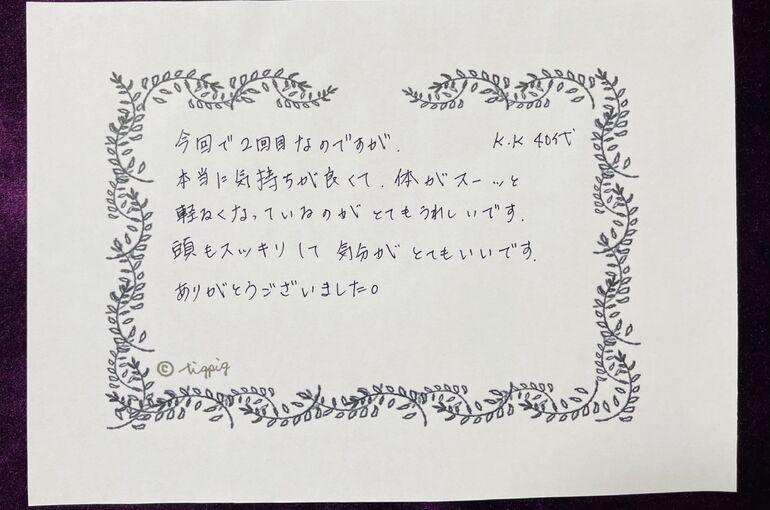 今回で2回目なのですが、 K.K 40代
本当に気持ちが良くて、体がスーッと
軽くなっているのがとてもうれしいです。
頭もスッキリして気分がとてもいいです。
ありがとうございました。
© tigpig